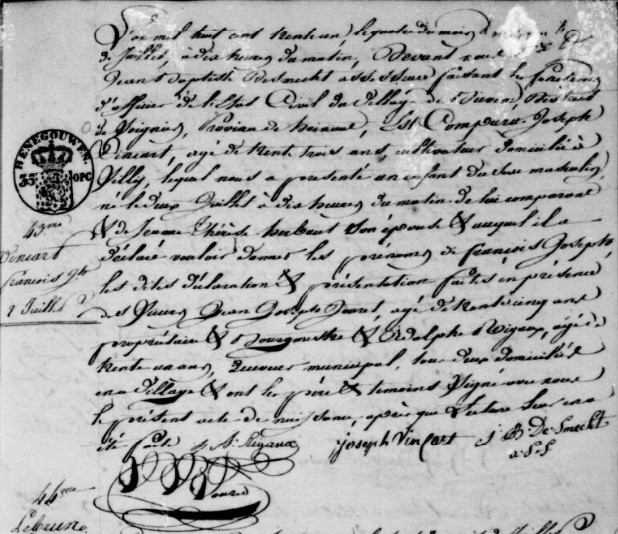 L'an mil huit cent trente un, le quatre du mois
de Juillet, à dix heures du matin, Devant nous
Jean Baptiste Desmecht assesseur faisant les fonctions
d'officier de l'Etat Civil du Village de
de Soignies, Province de hainaut, Est Comparu Joseph
Vincart, agé de trente trois ans, cultivateur domicilié à
lequel nous a présenté un enfant du sexe masculin,
né le deux Juillet à dix heures du matin de lui comparant
& de Jeanne Thérèse son épouse & auquel il a
déclaré vouloir donner les prénoms de françois Joseph,
les dites déclaration & présentation faites en présence
des Sieurs Jean Joseph agé de trente cinq ans
propriétaire & Bourgmestre & Adolphe Rigaux, agé de
trente un ans, receveur municipal, tous deux domiciliés
en ce Village & ont les père & temoins signé avec nous
le présent acte de naissance, après que Lecture leur en a
été faite
Ad. Rigaux
Joseph Vincart
J B De Smecht
HENEGOUWEN
35 OPC
43me
Vincart
françois Jh
2 Juillet
44me
Lebrun